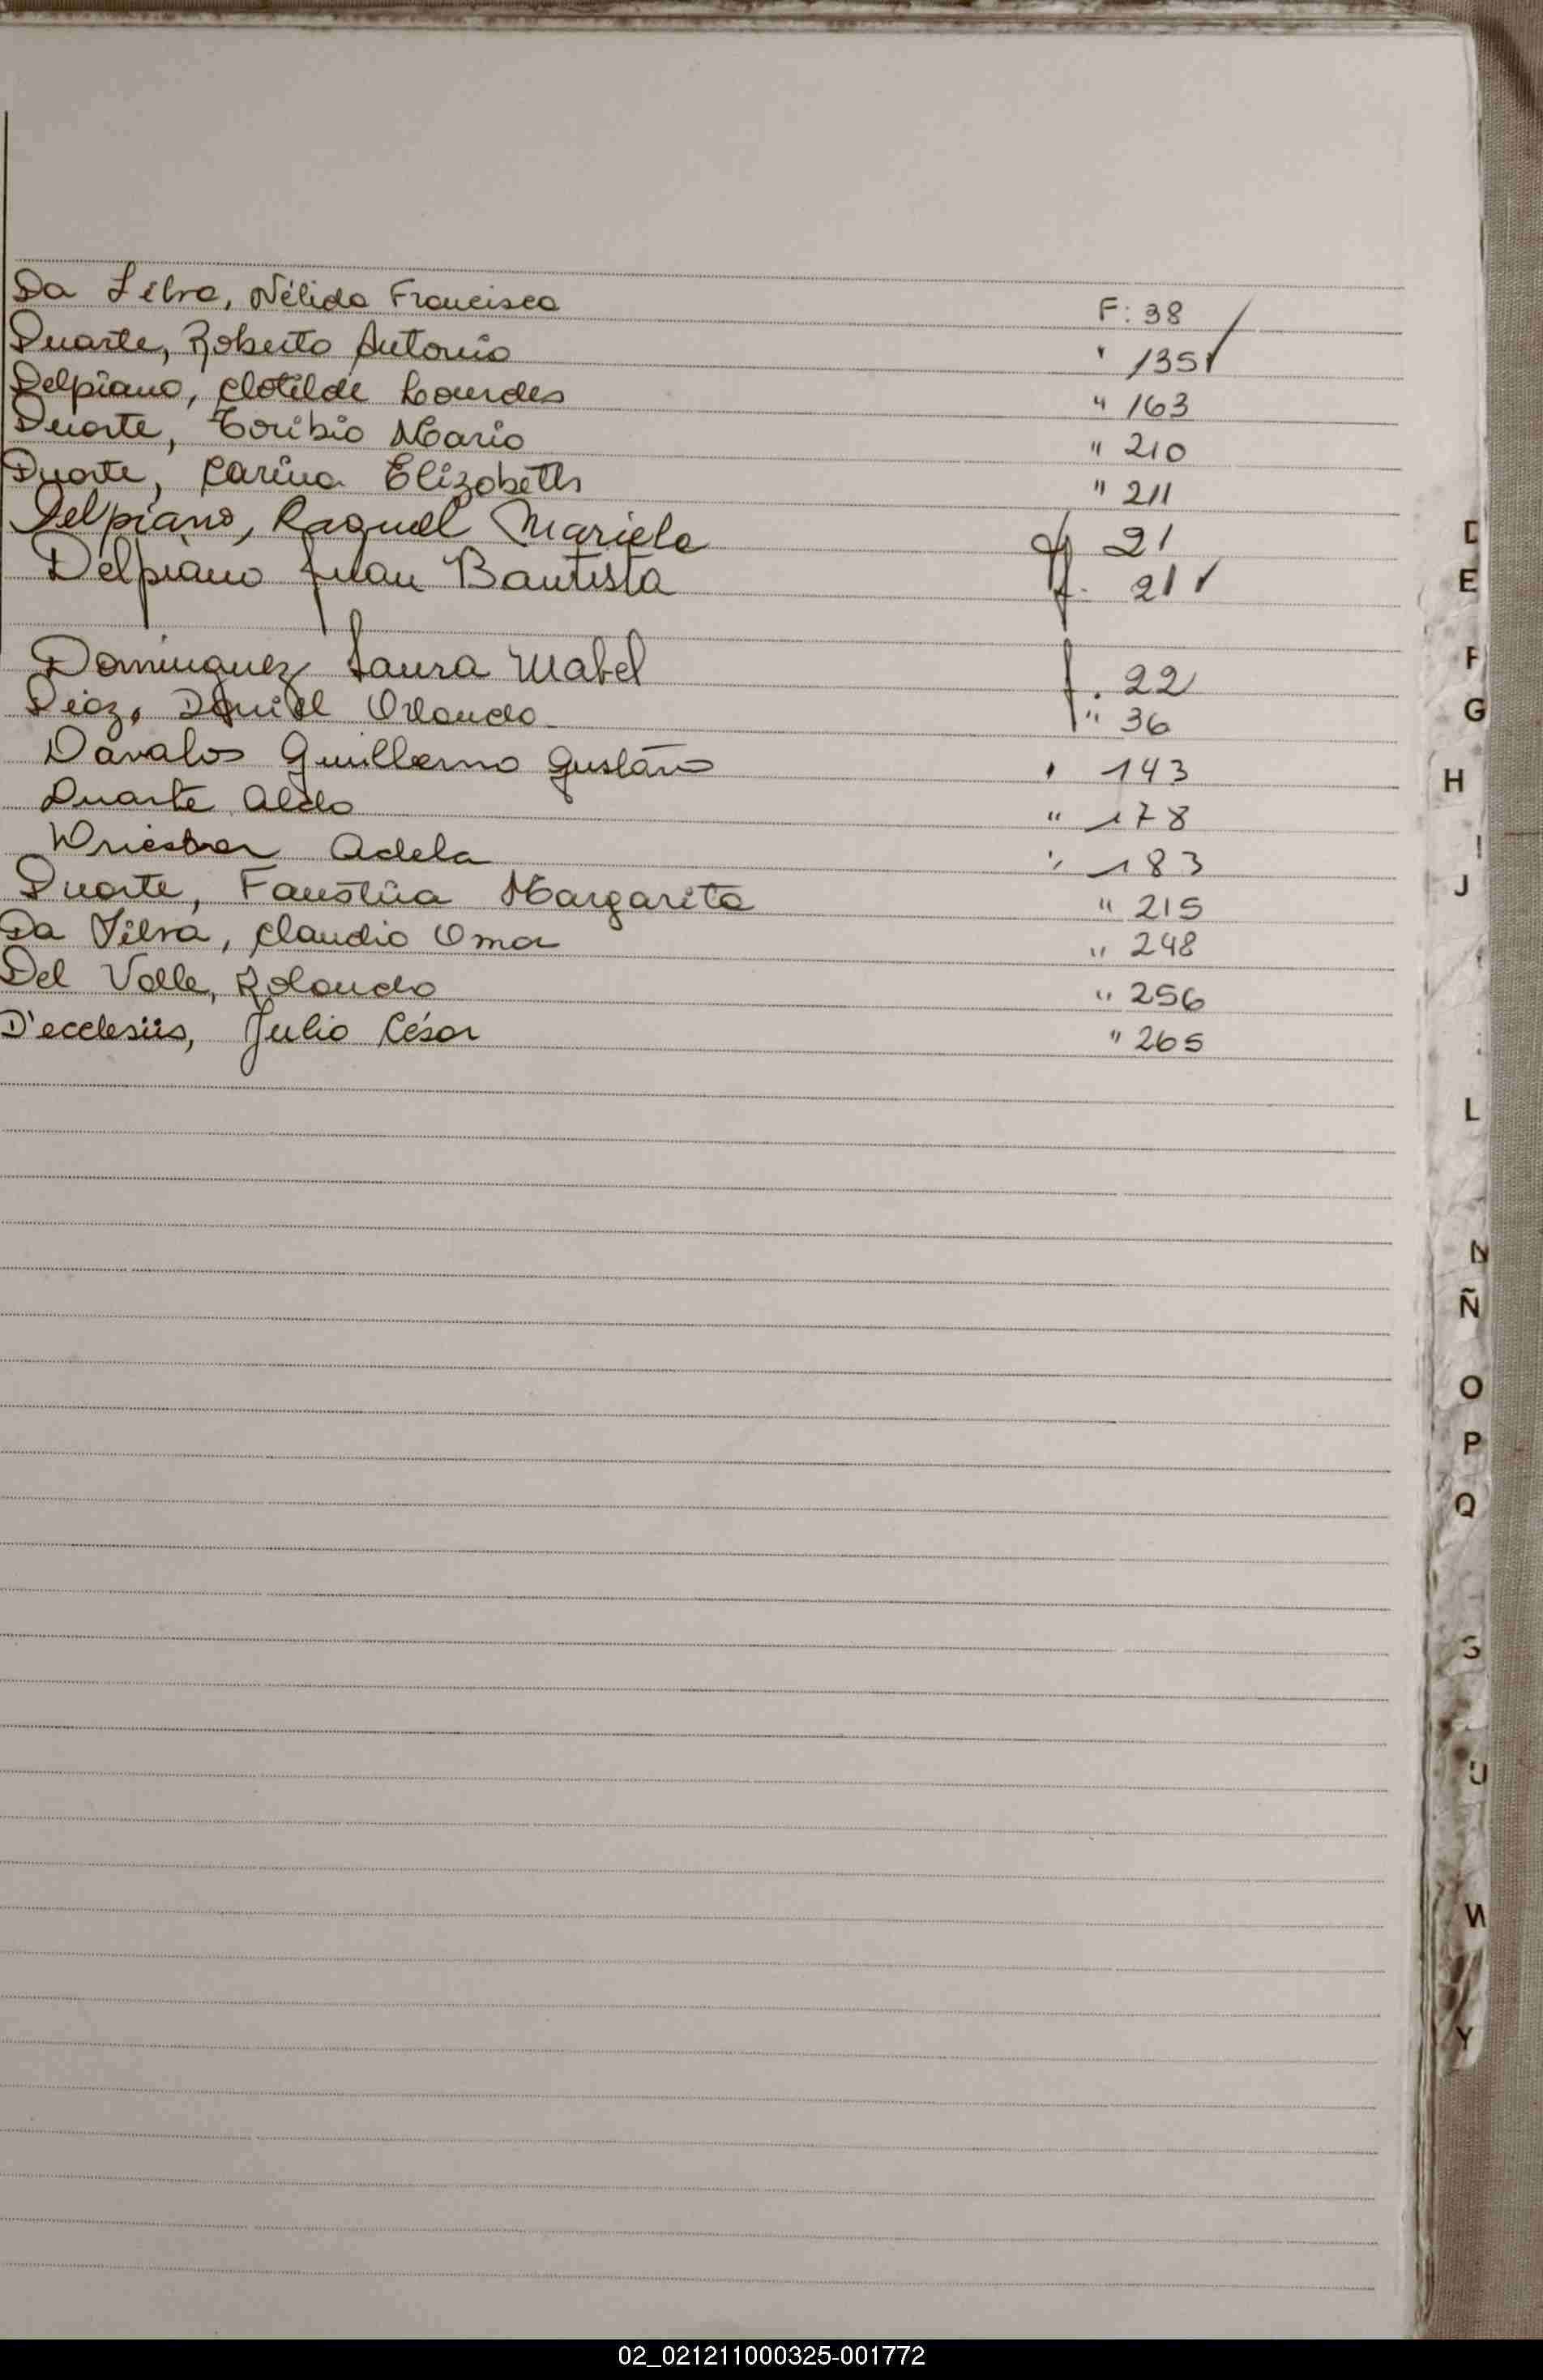 Da Silva, Nélida Francisca F: 38
Duarte, Roberto Antonio " 135 ✓
Delpiano, Clotilde Lourdes " 163
Duarte, Toribio Mario " 210
Duarte, Carina Elizabeth " 211
Delpiano, Raquel Mariela f 21
Delpiano Juan Bautista f. 21 ✓
Dominguez Laura Mabel f. 22
Diaz, Daniel Orlando " 36
Davalos Guillermo Gustavo " 143
Duarte Aldo " 178
Adela " 183
Duarte, Faustina Margarita " 215
Da Silva, Claudio Omar " 248
Del Valle, Rolando " 256
D'ecclesiis, Julio César " 265
D
E
F
G
H
I
J
L
N
Ñ
O
P
Q
S
U
W
Y
02_021211000325-001772